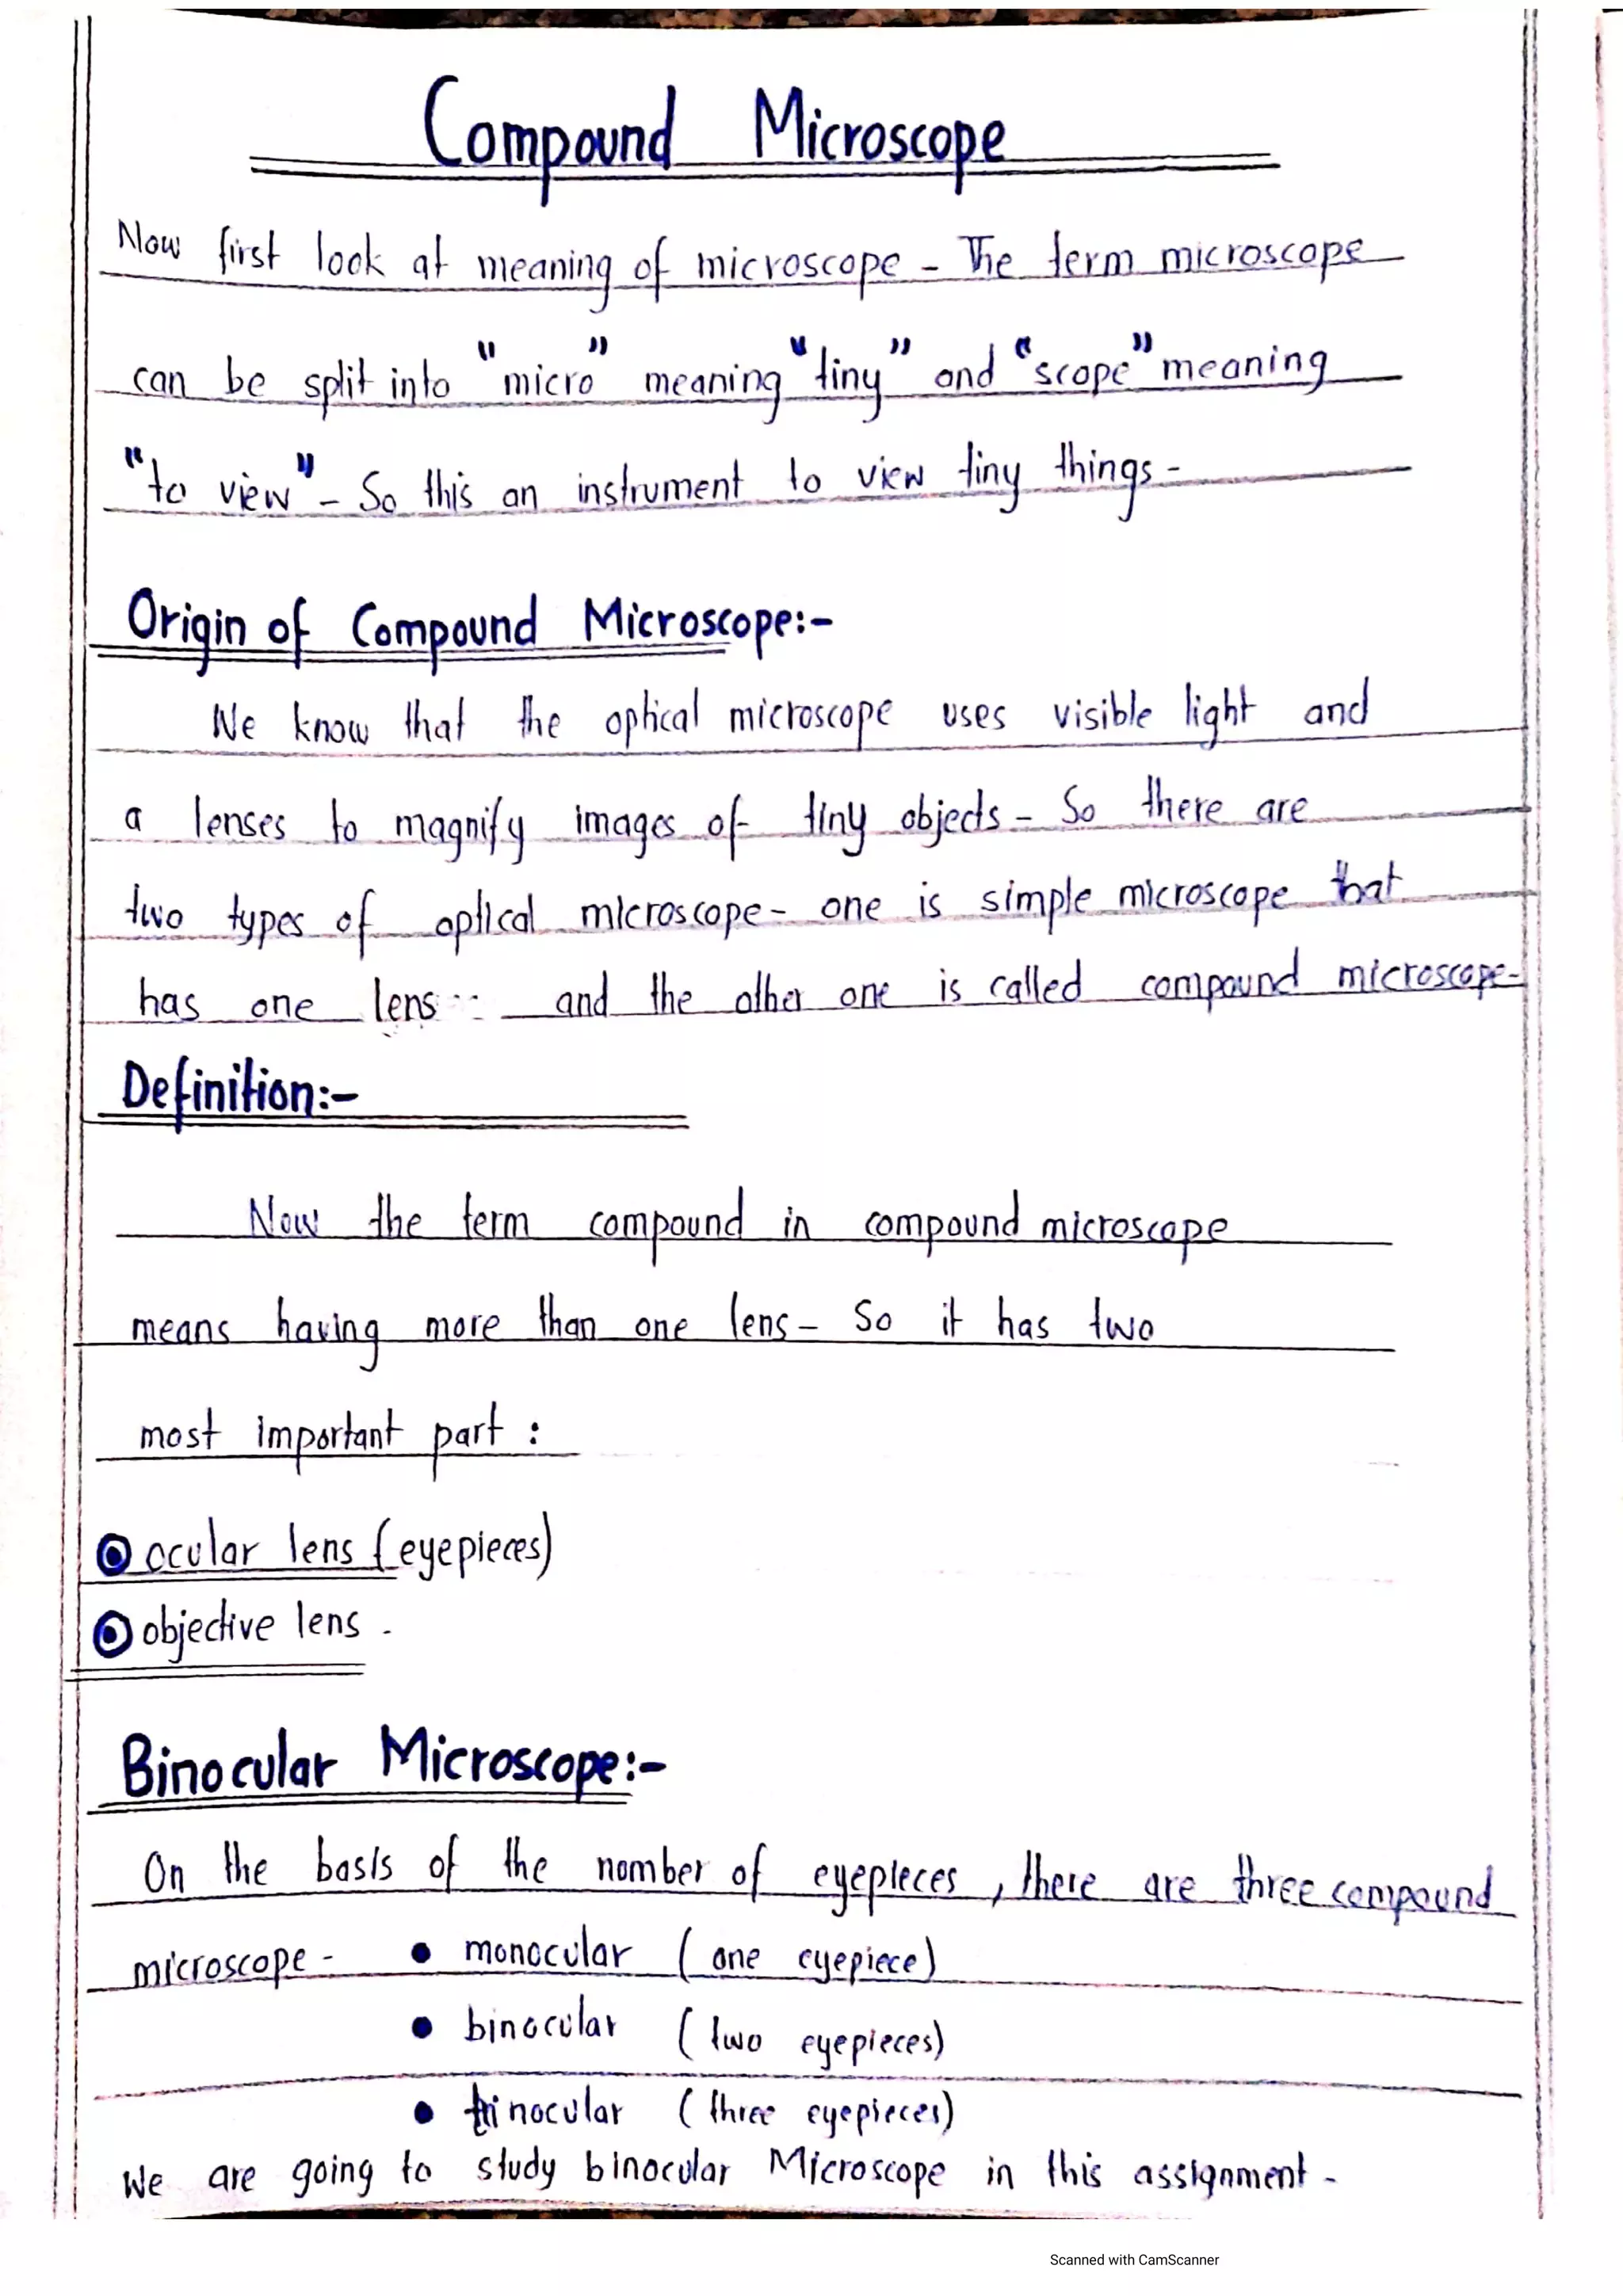 Compound Microscope
Now first look at meaning of microscope - The term microscope
can be split into "micro" meaning "tiny" and "scope" meaning
"to view" - So this an instrument to view tiny things -
Origin of Compound Microscope:-
We know that the optical microscope uses visible light and
a lenses to magnify images of tiny objects - So there are
two types of optical microscope - one is simple microscope that
has one lens and the other one is called compound microscope-
Definition:-
Now the term compound in compound microscope
means having more than one lens - So it has two
most important part :
ocular lens (eyepieces)
objective lens .
Binocular Microscope:-
On the basis of the nomber of eyepieces , there are three compound
microscope - • monocular (one eyepiece)
• binocular (two eyepieces)
• trinocular (three eyepieces)
We are going to study binocular Microscope in this assignment -
Scanned with CamScanner